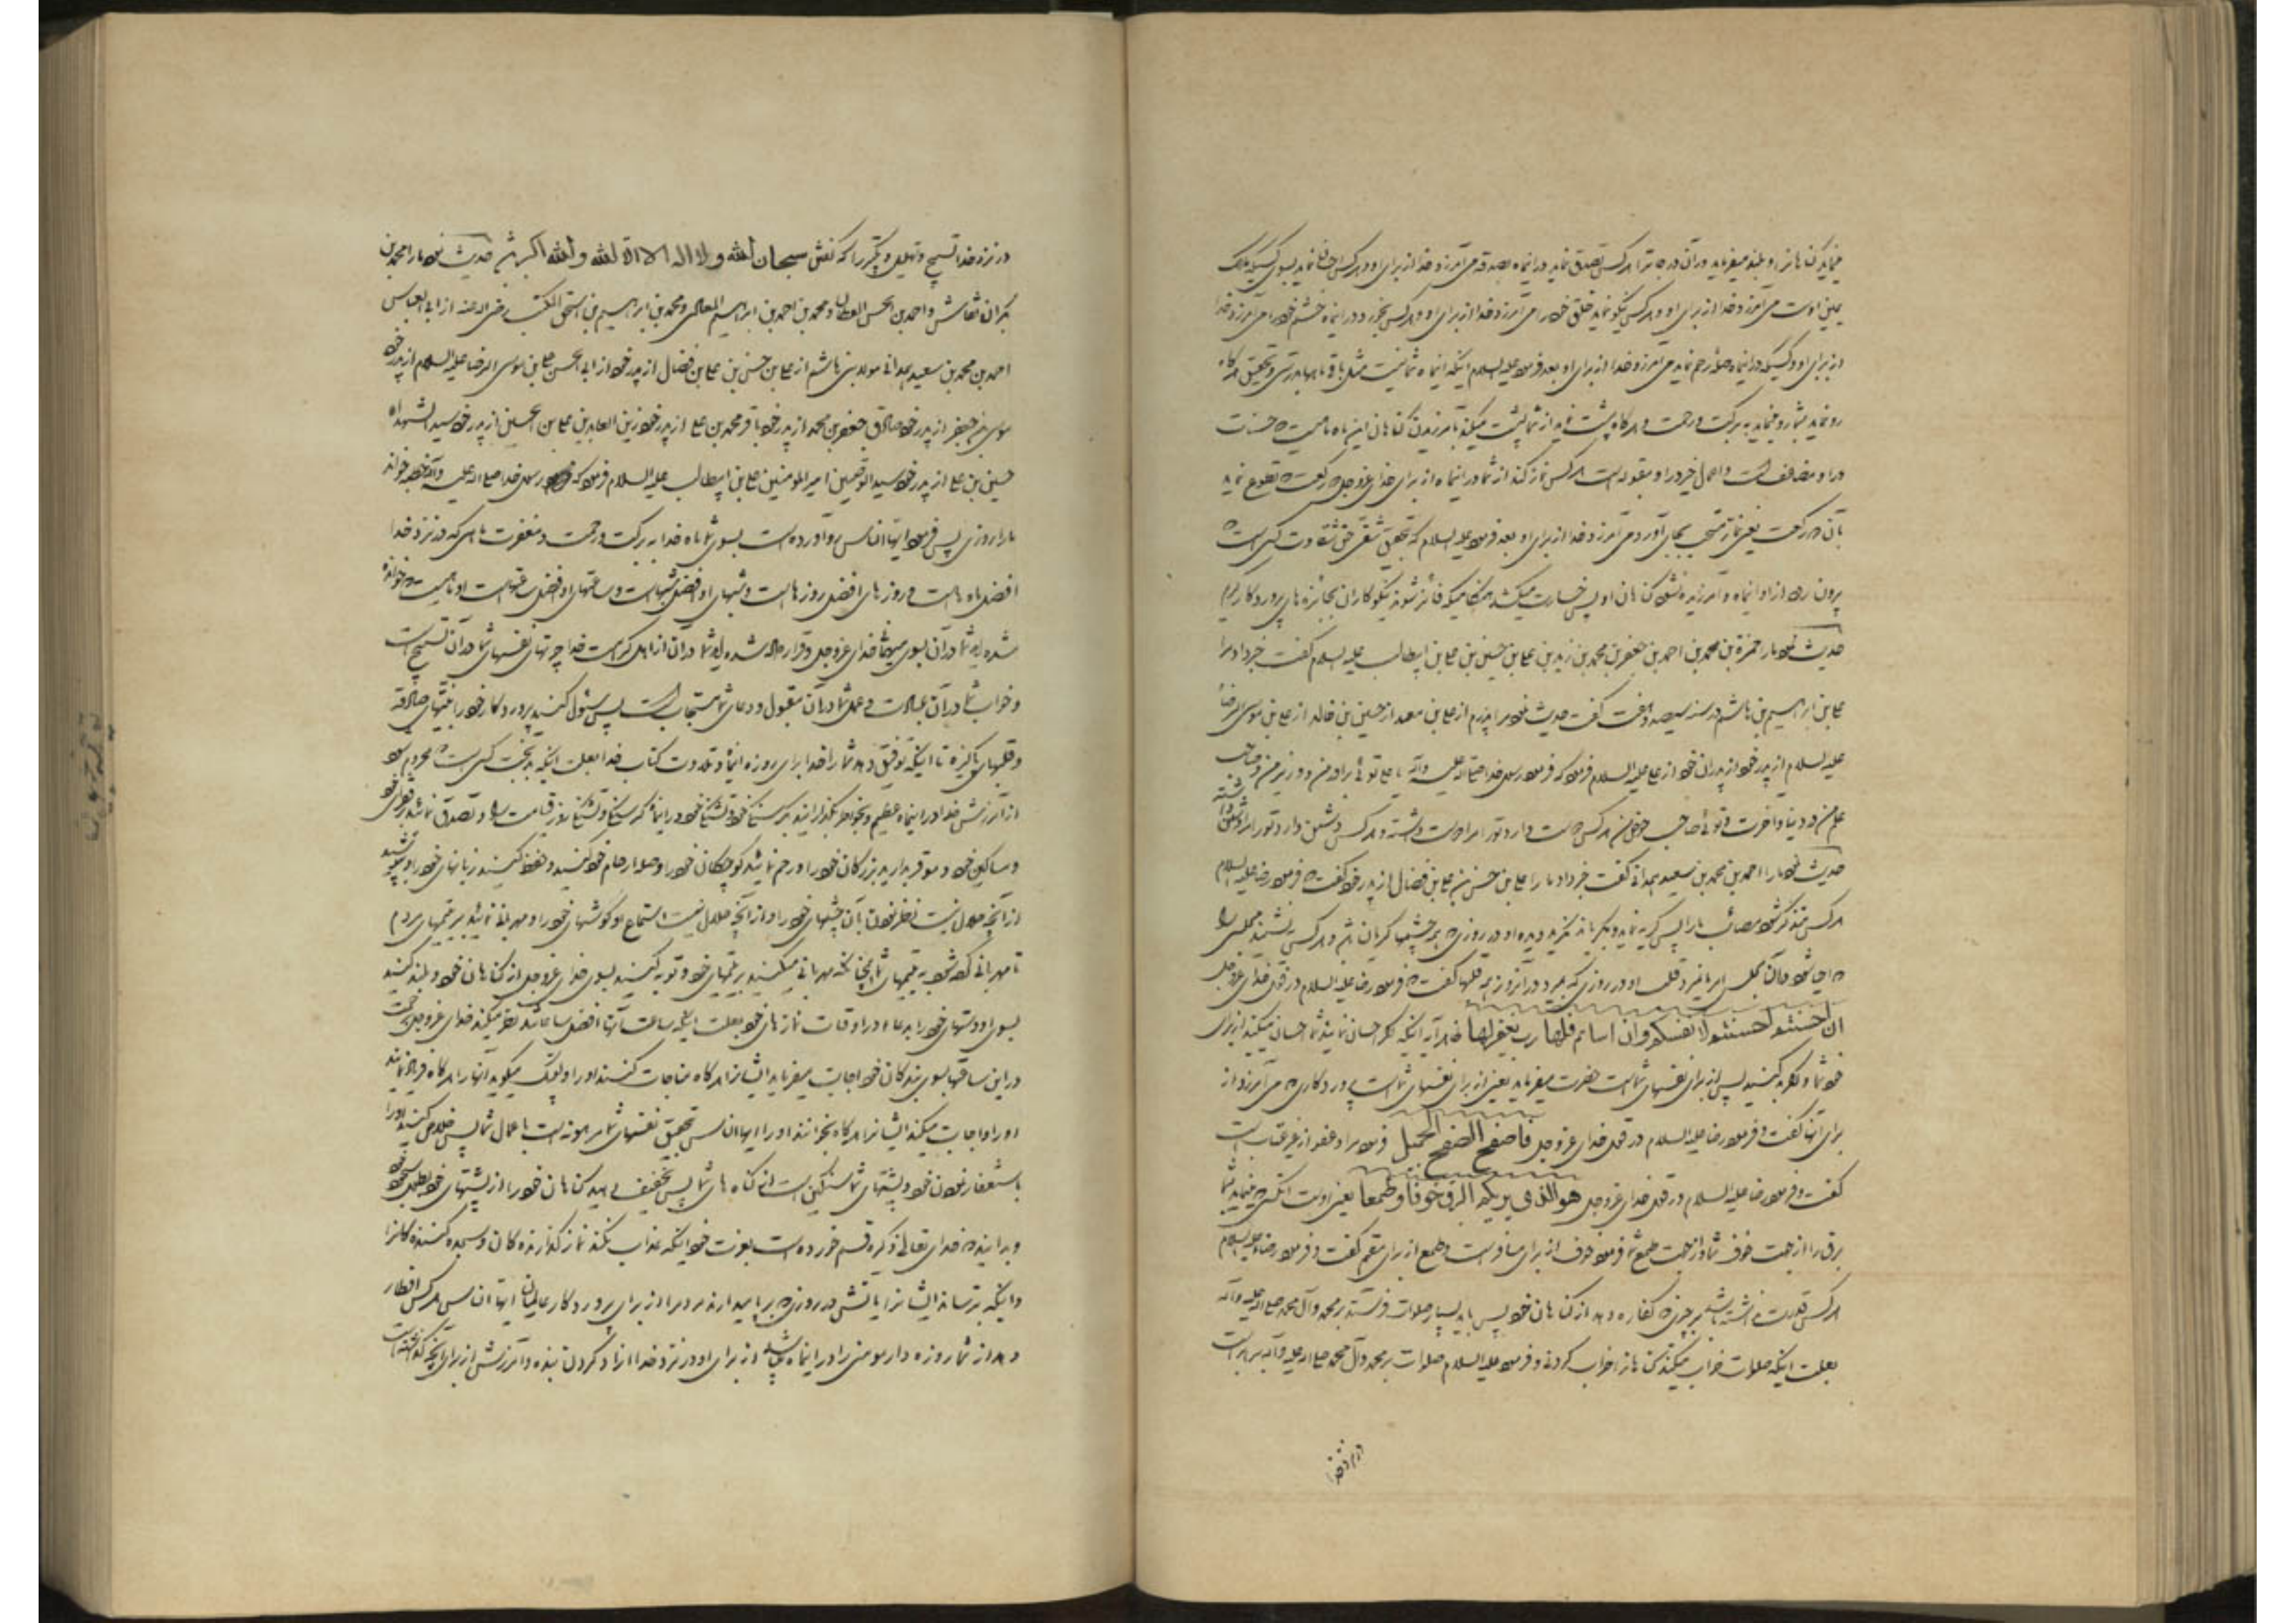 میفماید گناهانرا و بلند میفرماید در آن درجاترا هرکس تصدق نماید در اینماه بصدقه می آمرزد خدا از برای او و هرکس احسان نماید بسوی کسیکه ملک
یمین اوست می آمرزد خدا از برای او و هرکس نیکو نماید خلق خود را می آمرزد خدا از برای او و هرکس بخورد در اینماه خشم خود را می آمرزد خدا
از برای او و کسیکه در اینماه صله رحم نماید می آمرزد خدا از برای او بعد فرمود علیه السلام اینکه اینماه شما نیست مثل باقی ماهها بدرستی و تحقیق هرگاه
رو نماید بشما رو مینماید به برکت و رحمت و هرگاه پشت نماید از شما پشت میکند بآمرزیدن گناهان این ماه ماهیست که حسنات
در او مضاعف است و اعمال خیر در او مقبولست هرکس نماز کند از شما در اینماه از برای خدای عزوجل دو رکعت که تطوع نماید
بآن دو رکعت یعنی نماز مستحب بجای آورد می آمرزد خدا از برای او بعد فرمود علیه السلام که بتحقیق شقی حق شقاوت کسی است که
بیرون رود از او اینماه و آمرزیده نشود گناهان او پس خسارت میکشد هنگامیکه فائز شوند نیکوکاران بجائزه های پروردگار کریم
حدیث نمود ما را حمزة بن محمد بن احمد بن جعفر بن محمد بن زید بن علی بن حسین بن علی بن ابیطالب علیه السلام گفت خبر داد مرا
علی بن ابراهیم بن هاشم در سنه سیصد و هفت گفت حدیث نمود مرا پدرم از علی بن معبد از حسین بن خالد از علی بن موسی الرضا
علیه السلام از پدر خود از پدران خود از علی علیه السلام فرمود که فرمود رسول خدا صلی الله علیه وآله یا علی توئی برادر من و وزیر من و صاحب
علم من در دنیا و آخرت و توئی صاحب حوض من هرکس دوست دارد تو را مرا دوست داشته و هرکس دشمن دارد تو را مرا دشمن داشته
حدیث نمود ما را احمد بن محمد بن سعید همدانی گفت خبر داد ما را علی بن حسن بن علی بن فضال از پدر خود گفت که فرمود رضا علیه السلام
هرکس متذکر شود مصائب ما را پس گریه نماید و بگریاند نگرید دیده او در روزی که همه چشمها گریان شود و هرکس بنشیند مجلسی را
که احیا شود در آن مجلس امر ما نمیرد قلب او در روزی که بمیرد در آنروز همه قلبها گفت که فرمود رضا علیه السلام در قول خدای عزوجل
ان احسنتم احسنتم لانفسکم وان اساتم فلها رب یغفر لها ظاهر آیه اینکه اگر احسان نمائید شما احسان میکنید از برای
خود شما و اگر بد کنید پس از برای نفسهای شماست حضرت میفرماید یعنی از برای نفسهای شماست پروردگاری که می آمرزد از
برای آنها گفت و فرمود رضا علیه السلام در قول خدای عزوجل فاصفح الصفح الجمیل فرمود مراد عفو از غیر عتاب است
گفت و فرمود رضا علیه السلام در قول خدای عزوجل هو الذی یریکم البرق خوفا و طمعا یعنی اوست آنکس که مینماید شما را
برق را از جهت خوف شما و از جهت طمع شما فرمود خوف از برای مسافر است و طمع از برای مقیم گفت و فرمود رضا علیه السلام
هرکس قدرت نداشته باشد بر چیزی که کفاره دهد از گناهان خود پس باید بسیار صلوات فرستد بر محمد و آل محمد صلی الله علیه وآله
بعلت اینکه صلوات خراب میکند گناهانرا خراب کردنی و فرمود علیه السلام صلوات بر محمد و آل محمد صلی الله علیه وآله برابر است
در نزد خدا
در نزد خدا تسبیح و تهلیل و تکبیر را که گفتن سبحان الله ولا اله الا الله والله اکبر باشد حدیث نمود ما را محمد بن
بکران نقاش و احمد بن الحسن القطان و محمد بن احمد بن ابراهیم المعاذی و محمد بن ابراهیم بن اسحق المکتب رضی الله عنه از ابی العباس
احمد بن محمد بن سعید همدانی مولی بنی هاشم از علی بن حسن بن علی بن فضال از پدر خود از ابی الحسن علی بن موسی الرضا علیه السلام از پدر خود
موسی بن جعفر از پدر خود صادق جعفر بن محمد از پدر خود باقر محمد بن علی از پدر خود زین العابدین علی بن الحسین از پدر خود سید الشهداء
حسین بن علی از پدر خود سید الوصیین امیر المومنین علی بن ابیطالب علیه السلام فرمود که رسول خدا صلی الله علیه وآله خطبه خواند
ما را روزی پس فرمود ایها الناس رو آورده است بسوی شما ماه خدا به برکت و رحمت و مغفرت ماهی که در نزد خدا
افضل ماه هاست و روزهای افضل روزهاست و شبهای او افضل شبهاست و ساعتهای او افضل ساعتهاست او ماهیست که خوانده
شده اید شما در آن بسوی میهمانی خدای عزوجل و قرار داده شده اید شما در آن از اهل کرامت خدا چرا که نفسهای شما در آن تسبیح است
و خواب شما در آن عبادت و عمل شما در آن مقبول و دعای شما مستجاب است پس سئوال کنید پروردگار خود را بنیتهای صادقه
و قلبهای پاکیزه تا اینکه توفیق دهد شما را خدا برای روزه اینماه و تلاوت کتاب خدا بعلت اینکه بدبخت کسی است که محروم شود
از آمرزش خدا در اینماه عظیم و بخواطر بگذرانید بگرسنگی خود و تشنگی خود در اینماه گرسنگی و تشنگی روز قیامت را و تصدق نمائید بفقرای خود
و مساکین خود و موقر بدارید بزرگان خود را و رحم نمائید کوچکان خود را و صله ارحام خود کنید و حفظ کنید زبانهای خود را و بپوشید
از آنچه حلال نیست نظر نمودن بآن چشمهای خود را و از آنچه حلال نیست استماع او گوشهای خود را و مهربانی نمائید بر یتیمهای مردم
تا مهربانی کرده شود به یتیمهای شما چنانکه مهربانی میکنید بر یتیمهای خود و توبه کنید بسوی خدای عزوجل از گناهان خود و بلند کنید
بسوی او دستهای خود را بدعا در اوقات نمازهای خود بعلت اینکه ساعت آنها افضل ساعاتند نظر میکند خدای عزوجل برحمت
در این ساعتها بسوی بندگان خود اجابت میفرماید ایشانرا هرگاه مناجات کنند او را و لبیک میگوید آنها را هرگاه فریاد نمایند
او را و اجابت میکند ایشانرا هرگاه بخوانند او را ایها الناس بتحقیق نفسهای شما مرهونه است باعمال شما پس خلاص کنید او را
باستغفار نمودن خود و پشتهای شما سنگین است از گناه های شما پس تخفیف دهید گناهان خود را از پشتهای خود بطول سجود خود
و بدانید که خدای تعالی ذکره قسم خورده است بعزت خود اینکه عذاب نکند نماز گذارنده گان و سجده کننده گانرا
و اینکه نترساند ایشانرا بآتش در روزی که برپا میدارند مردمرا از برای پروردگار عالمیان ایها الناس هرکس افطار
دهد از شما روزه دار مومنی را در اینماه میباشد از برای او در نزد خدا آزاد کردن بنده و آمرزش از برای آنچه گذشته است